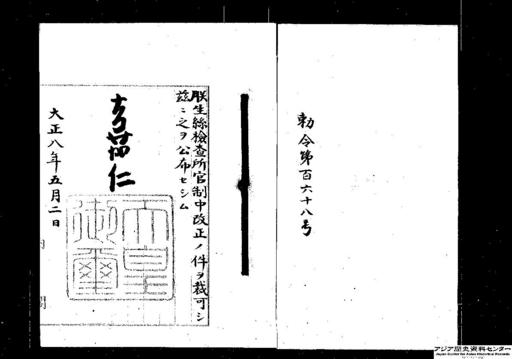 勅令第百六十八号
朕生絲檢查所官制中改正ノ件ヲ裁可シ
茲ニ之ヲ公布セシム
嘉仁
天皇御璽
大正八年五月二日
内閣
アジア歴史資料センター
Japan Center for Asian Historical Records